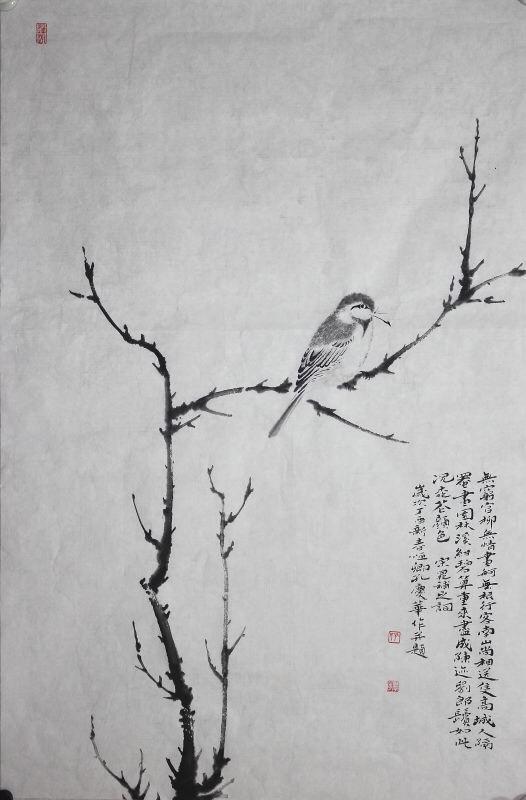 無窮官柳無情畫舸無根行客南山尚相送隻高城人隔
罨畫園林溪紺碧算重來盡成陳迹劉郎鬢如此
況桃花顏色 宋晁補之詞
歲次丁酉新春恒卿孔慶華作并題